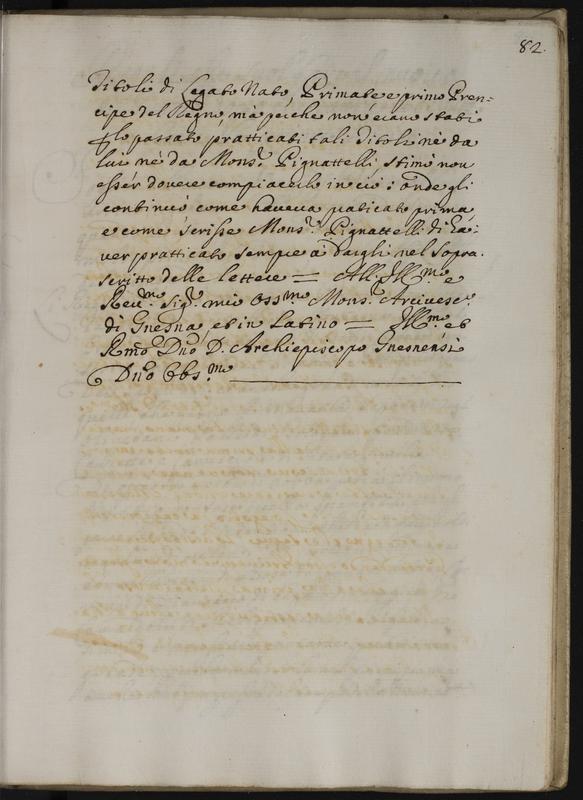 82.
Titoli di Legato Nato, Primate e primo Pren=
cipe del Regno, mà perche non erano stati
p lo passato pratticati tali Titoli nè da
lui nè da Mons.r Pignattelli stimò non
esser dovere compiacerlo in ciò: onde gli
continuò come haveva praticato prima,
e come scrisse Mons.r Pignattelli di ha=
ver pratticato sempre à dargli nel sopra=
scritto delle lettere = All' Ill.mo e
Rev.mo Sig.r mio Oss.mo Mons.r Arcivesc.o
di Gnesna, et in Latino = Ill.mo et
Rmo Dno D. Archiepiscopo Gnesnensi
Dno Obs.mo